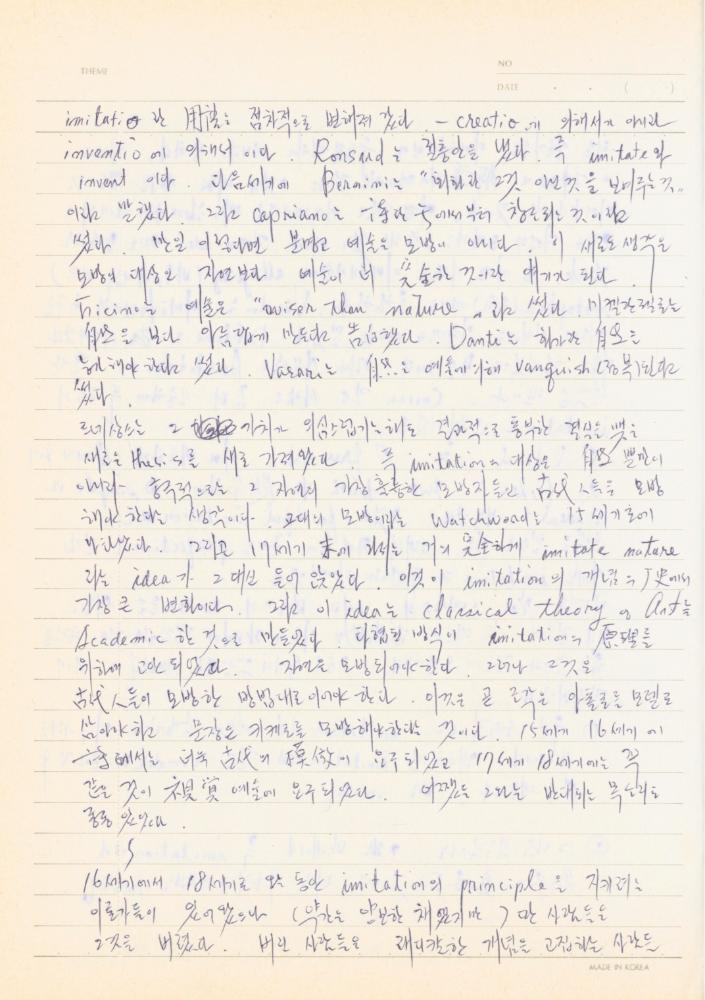 THEME
NO
DATE . . ( . )
imitatio 란 用語는 점차적으로 변해져 갔다. – creatio 에 의해서가 아니라
inventio 에 의해서 이다. Ronsard는 절충안을 냈다. 즉 imitate와
invent 이다. 다음세기에 Bernini는 "회화란 그것 아닌것을 보여주는것"
이라고 말했다. 그리고 Capriano는 詩란 無에서부터 창조되는 것이라고
썼다. 만일 이렇다면 분명코 예술은 모방이 아니다. 이 새로운 생각은
모방의 대상인 자연보다 예술이 더 完全한 것이라는 얘기가 된다.
Ficino는 예술은 "wiser than nature" 라고 썼다 미켈란젤로는
自然을 보다 아름답게 만든다고 告白했다. Danti는 화가란 自然을
능가해야 한다고 썼다. Vasari는 自然은 예술에 의해 vanquish (정복)된다고
썼다.
르네상스는 그 가치가 의심스럽기는해도 결과적으로 풍부한 결실을 맺은
새로운 thesis를 새로 가져왔다. 즉 imitation의 대상은 自然 뿐만이
아니라 궁극적으로는 자연의 가장 훌륭한 모방자들인 古代人들을 모방
해야 한다는 생각이다. 고대의 모방이라는 watchword는 15세기초에
나타났다. 그리고 17세기 末에 와서는 거의 完全하게 imitate nature
라는 idea가 그 대신 들어 앉았다. 이것이 imitation의 개념의 历史에서
가장 큰 변화이다. 그리고 이 idea는 classical theory of Art를
Academic 한 것으로 만들었다. 타협된 방식이 imitation의 原理를
위하여 고안되었다. 자연은 모방되어야 한다. 그러나 그것은
古代人들이 모방한 방법대로이어야 한다. 이것은 곧 조각은 아폴로를 모델로
삼아야하고 문장은 키케로를 모방해야한다는 것이다. 15세기 16세기 에
詩에서는 더욱 古代의 模倣이 요구되었고 17세기 18세기에는 꼭
같은 것이 視覚 예술에 요구되었다. 어쨌든 그와는 반대되는 목소리도
종종 있었다.
5
16세기에서 18세기로 오는 동안 imitation의 principle을 지키려는
이론가들이 있어왔으나 (약간은 양보한 채였지만) 많은 사람들은
그것을 버렸다. 버린 사람들은 래디칼한 개념을 고집하는 사람들
MADE IN KOREA